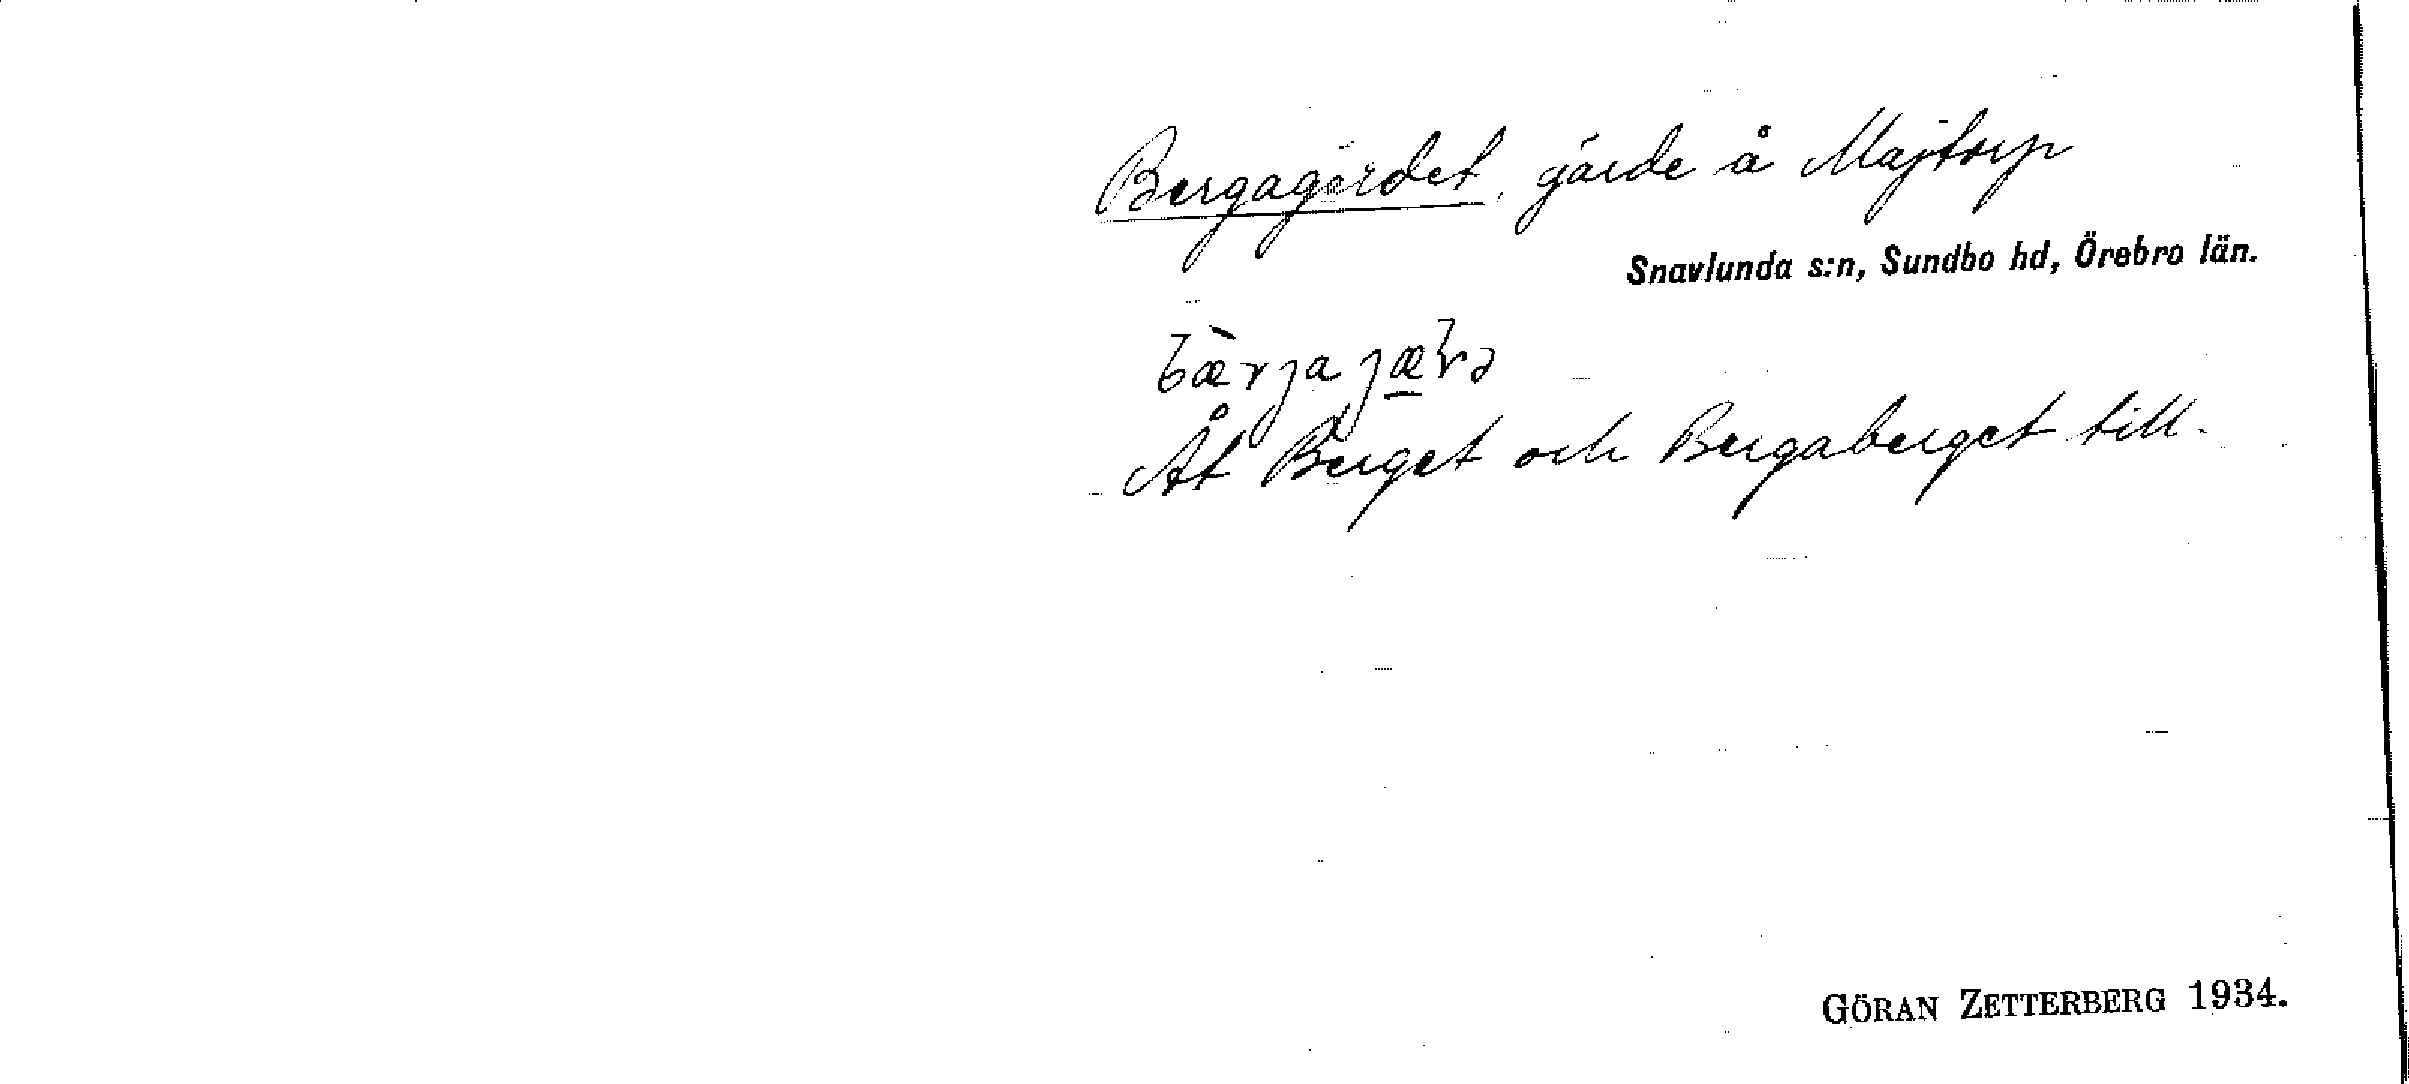 Bergagärdet, gärde å Majtorp
Snavlunda s:n, Sundbo hd, Örebro län.
bæ̀rjajæ̲ꭇə
Åt Berget och Bergaberget till.
GÖRAN ZETTERBERG 1934.